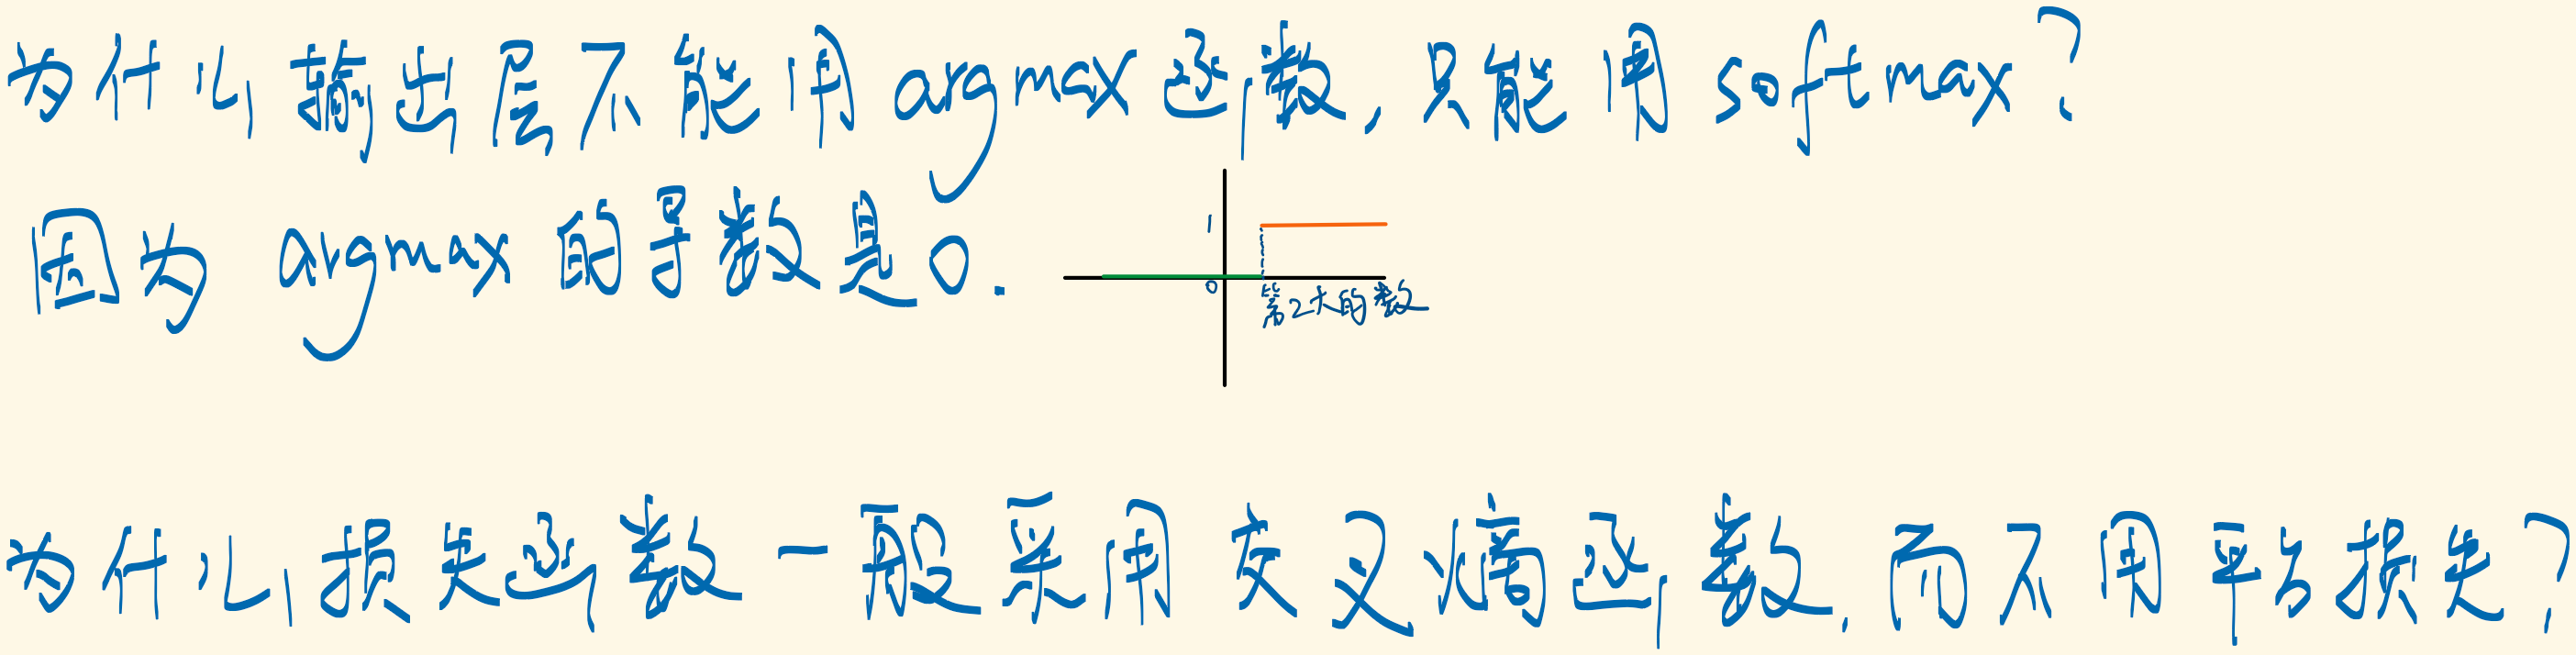 为什么输出层不能用argmax函数,只能用softmax?
因为argmax的导数是0.
1
0
第2大的数
为什么损失函数一般采用交叉熵函数,而不用平方损失?